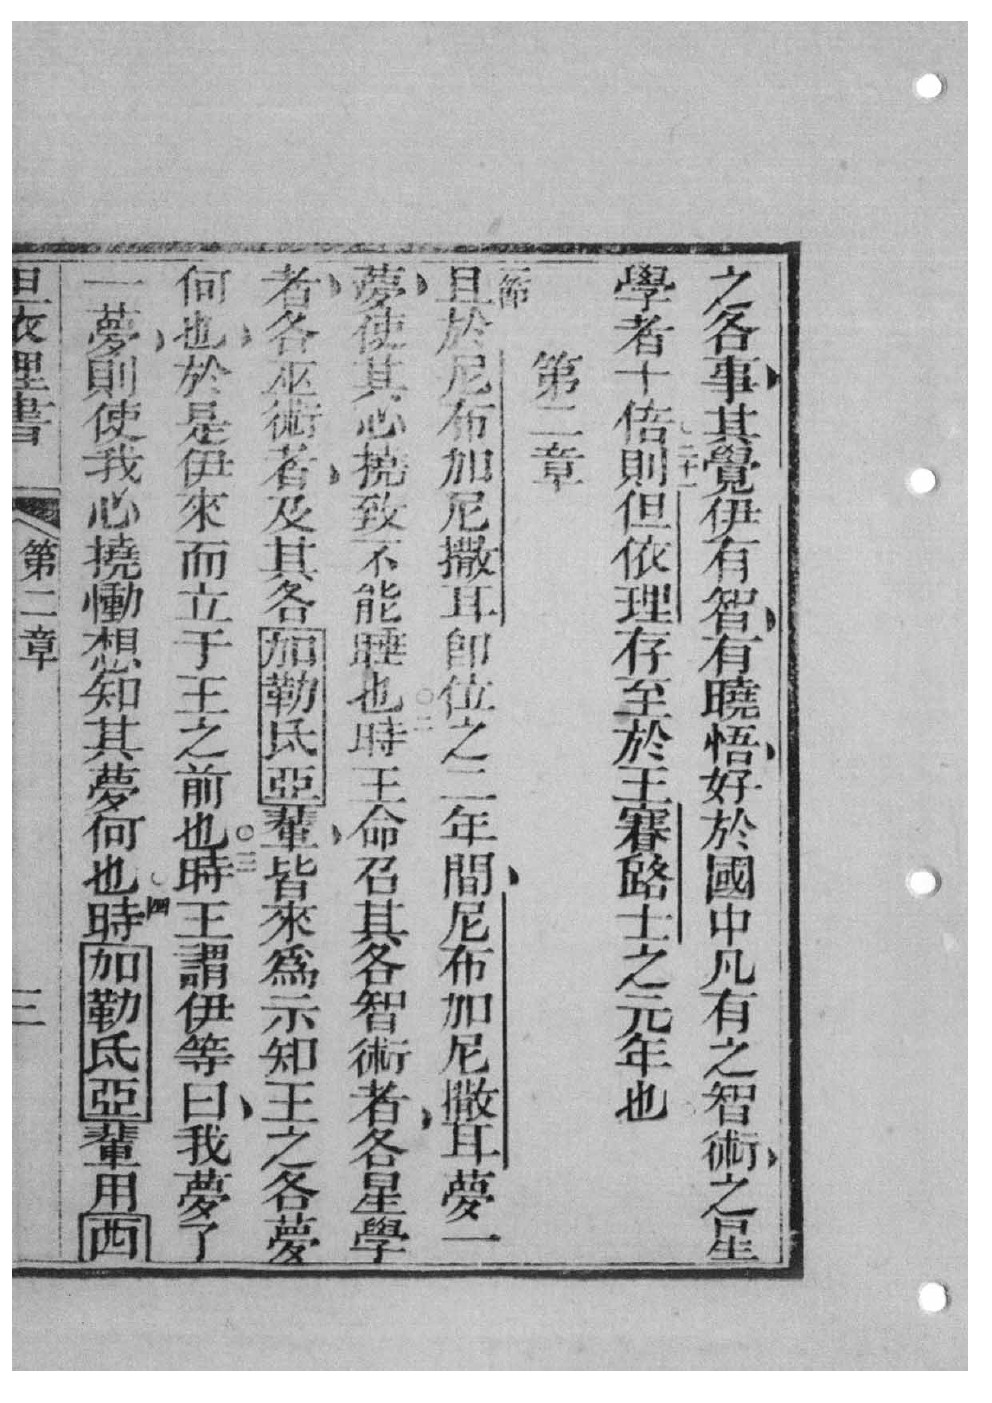 之各事其覺伊有智有曉悟好於國中凡有之智術之星
學者十倍則但依理存至於王賽路士之元年也
二十一
第二章
一節
且於尼布加尼撒耳卽位之二年間尼布加尼撒耳夢一
夢使其心撓致不能睡也時王命召其各智術者各星學
○二
者各巫術者及其各加勒氐亞輩皆來為示知王之各夢
何也於是伊來而立于王之前也時王謂伊等曰我夢了
○三
一夢則使我心撓慟想知其夢何也時加勒氐亞輩用西
四
但依理書 第二章 三